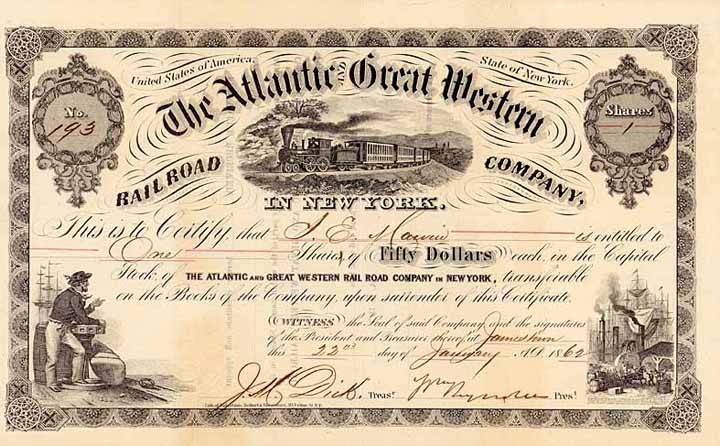 United States of America,
State of New York.
The Atlantic AND Great Western
No. 193
Shares 1
RAILROAD COMPANY,
IN NEW YORK.
This is to Certify, that S. E. is entitled to
One Shares, of Fifty Dollars each, in the Capital
Stock of THE ATLANTIC AND GREAT WESTERN RAIL ROAD COMPANY IN NEW YORK, transferable
on the Books of the Company, upon surrender of this Certificate.
WITNESS the Seal of said Company and the signatures
of the President and Treasurer thereof, at Jamestown
this 22nd day of January A.D. 1862
J. M. Dick Treasr. Wm Reynolds Pres!